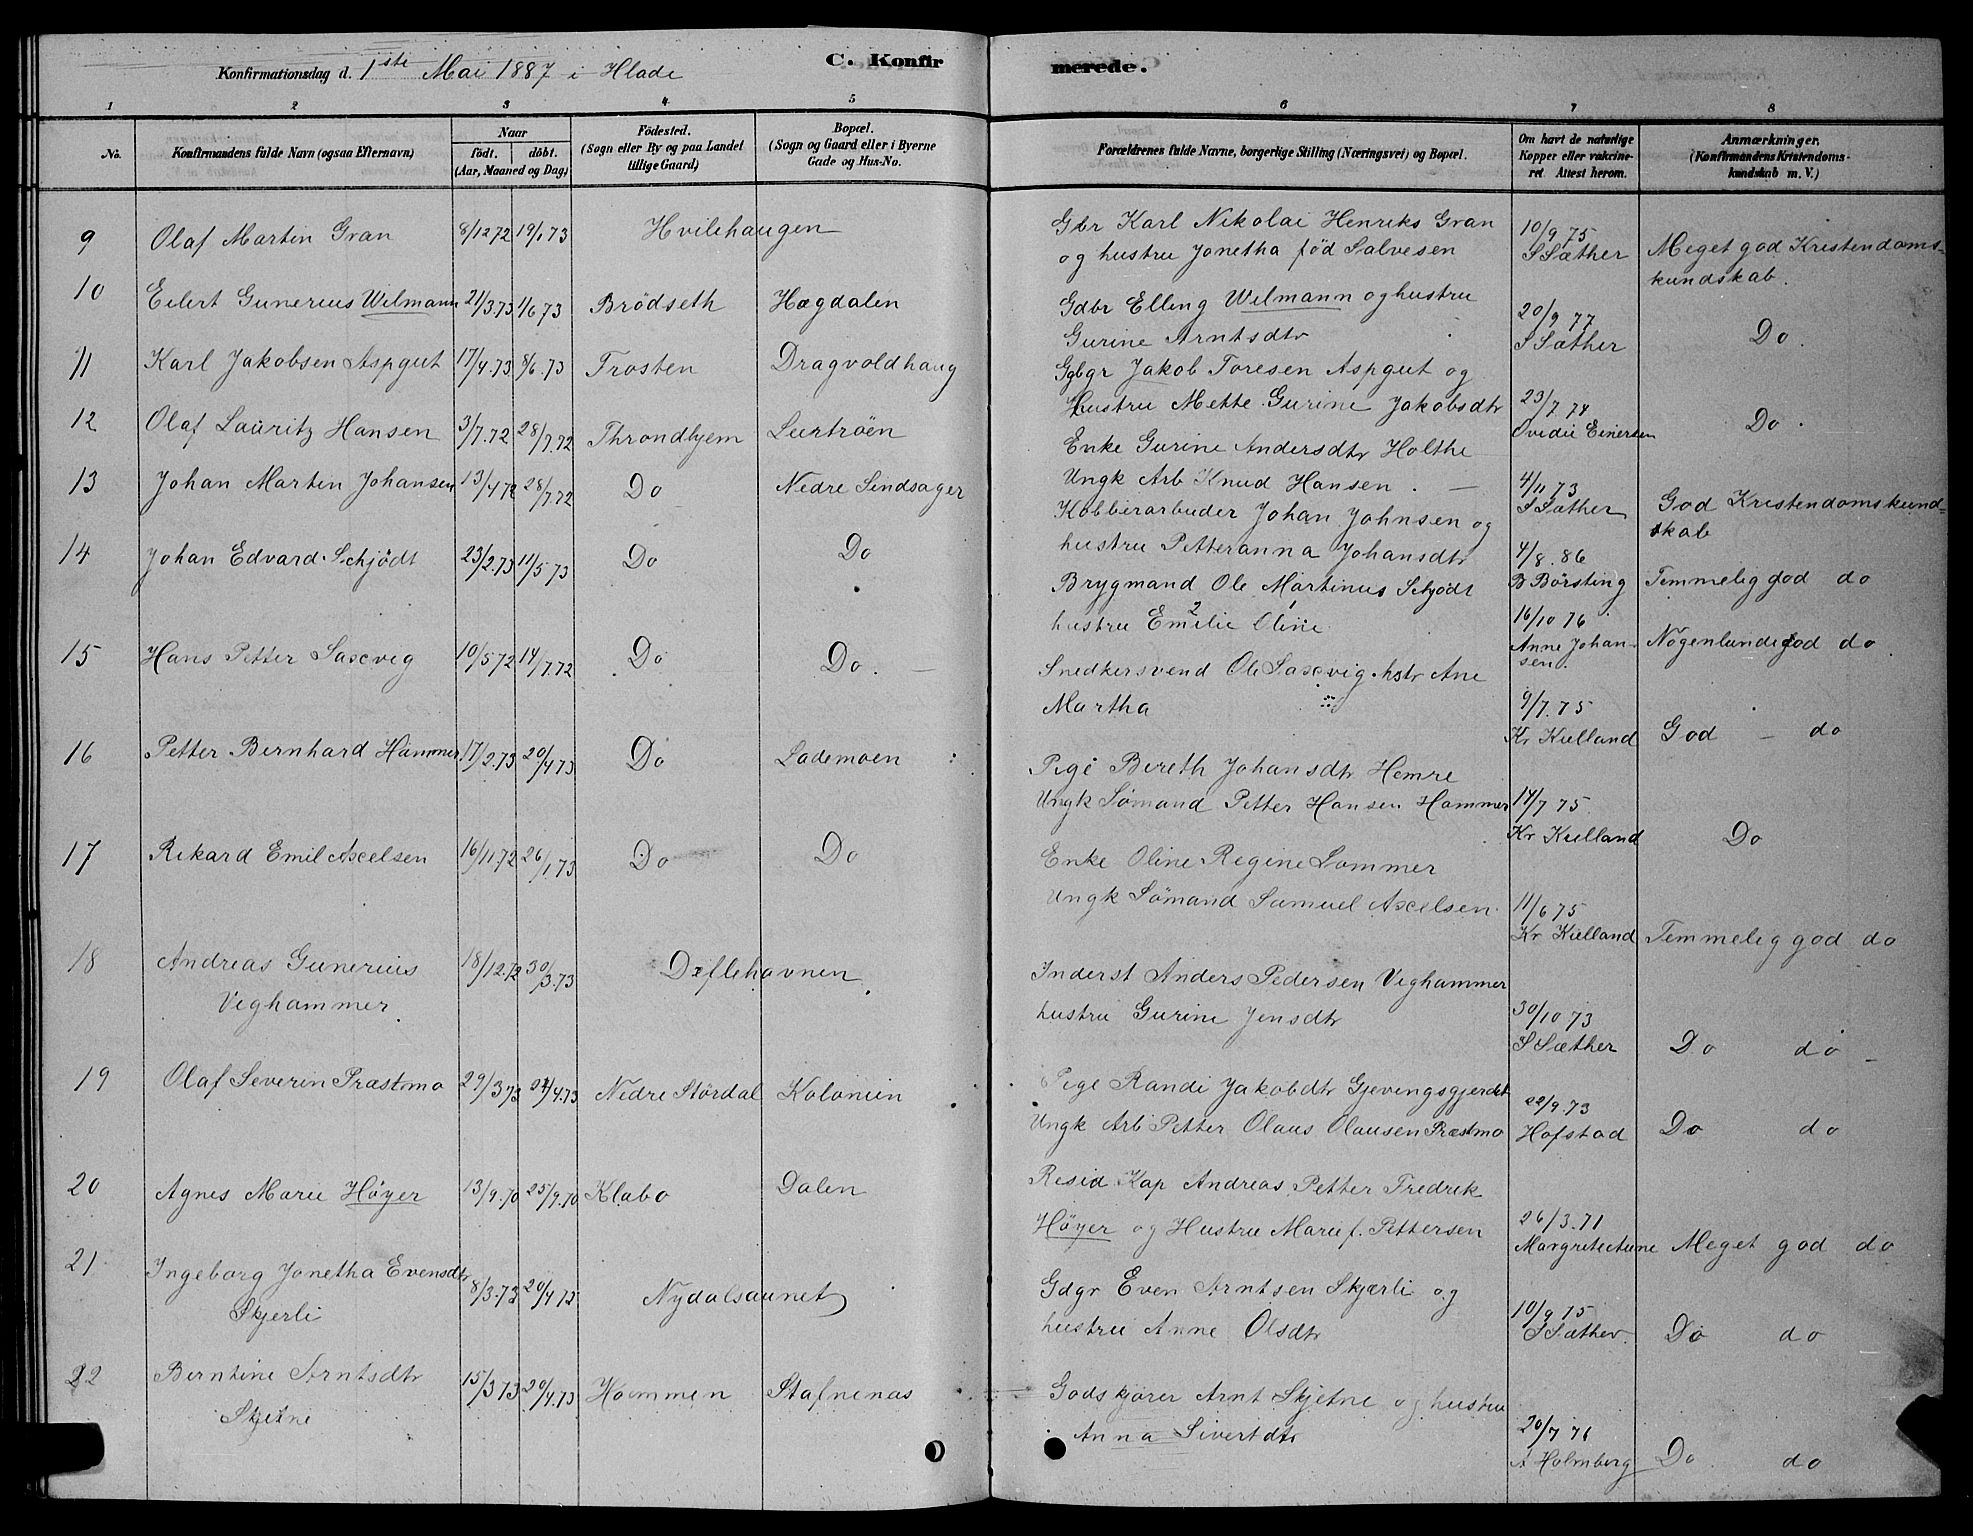 Konfirmationsdag d. 1ste Mai 1887 i Hlade
C. Konfirmerede.
1 2 3 4 5 6 7 8
No. Konfirmandens fulde Navn (ogsaa Efternavn) Naar født. døbt. (Aar, Maaned og Dag) Födested. (Sogn eller By og paa Landet tillige Gaard) Bopæl. (Sogn og Gaard eller i Byerne Gade og Hus-No. Forældrenes fulde Navne, borgerlige Stilling (Næringsvei) og Bopæl. Om havt de naturlige Kopper eller vakcineret. Attest herom. Anmærkninger. (Konfirmandens Kristendomskundskab m. V.)
9 Olaf Martin Gran 8/12 72 19/1 73 Hvilehaugen Gbr Karl Nikolai Henriks Gran 10/9 75
og hustru Jonetha fød Salvesen S Sæther Meget god Kristendoms-
kundskab.
10 Eilert Gunerius Wilmann 21/3.73 1/6 73 Brödseth Hægdalen Gdbr Elling Wilmann og hustru 20/9 77
Gurine Arntsdtr S Sæther Do.
11 Karl Jakobsen Aspgut 17/4.73 8/6.73 Frosten Dragvoldhaug Ggbgr Jakob Toresen Aspgut og
Hustru Mette Gurine Jakobsdtr 23/7.74
12 Olaf Lauritz Hansen 3/7.72 28/7.72 Throndhjem Leertröen Ovedie Einersen Do.
Enke Gurine Andersdtr Holthe
13 Johan Martin Johansen 13/4 72 28/7.72 Do Nedre Lindsager Ungk Arb Knud Hansen. 4/11 73
S Sæther God Kristendomskund-
skab
Kobberarbeider Johan Johnsen og
hustru Petteranna Johansdtr 4/8.86
14 Johan Edvard Schjödt 23/2.73 11/5 73 Do Do
Brygmand Ole Martinus Schjödt B Börsting Temmelig god do
hustru Emilie Oline 16/10 76
15 Hans Petter Saxevig 10/5 72 14/7.72 Do Do. Anne Johan- Nogenlunde god do
sen.
Snedkersvend Ole Saxevig. hstr Ane
Martha 9/7.75
16 Petter Bernhard Hammer 17/2.73 20/4 73 Do Lademoen Kr Kielland God - do
Pige Bereth Johansdtr Hemre
Ungk Sømand Petter Hansen Hammer 14/7 75
17 Rikard Emil Axelsen 16/11.72 26/1.73 Do Do Kr Kielland Do
Enke Oline Regine Lommer
Ungk Sømand Samuel Axelsen 11/6 75
Kr Kielland Temmelig god do
18 Andreas Gunerius 18/12.72 30/3.73 Deflehavnen. Inderst Anders Pedersen Veghammer
Veghammer. hustru Gurine Jensdtr 30/10 73
S Sæther Do do
19 Olaf Severin Præstmo 29/3 73 27/4.73 Nedre Stördal Kolonien Pige Randi Jakobdtr Gjevingsgjerdet 22/9.73
Ungk Arb Petter Olaus Olausen Præstmo Hofstad Do do
20 Agnes Marie Høyer 13/9.70 25/9.70 Klabo Dalen Resid Kap Andreas Petter Fredrik
Høyer og Hustru Marie f. Pettersen 26/3.71
Meget god do
21 Ingeborg Jonetha Evensdtr 8/3.73 20/4 73 Nydalsaunet Gdgr Even Arntsen Skjærli og 10/9 75
Skjerli hustru Anne Olsdtr S Sæther. Do do
22 Berntine Arntsdtr 15/3 73 20/4.73 Hommen Stafnenas Godskjører Arnt Skjetne og hustru
Skjetne Anna Sivertdtr 20/7 76
A Holmberg Do do